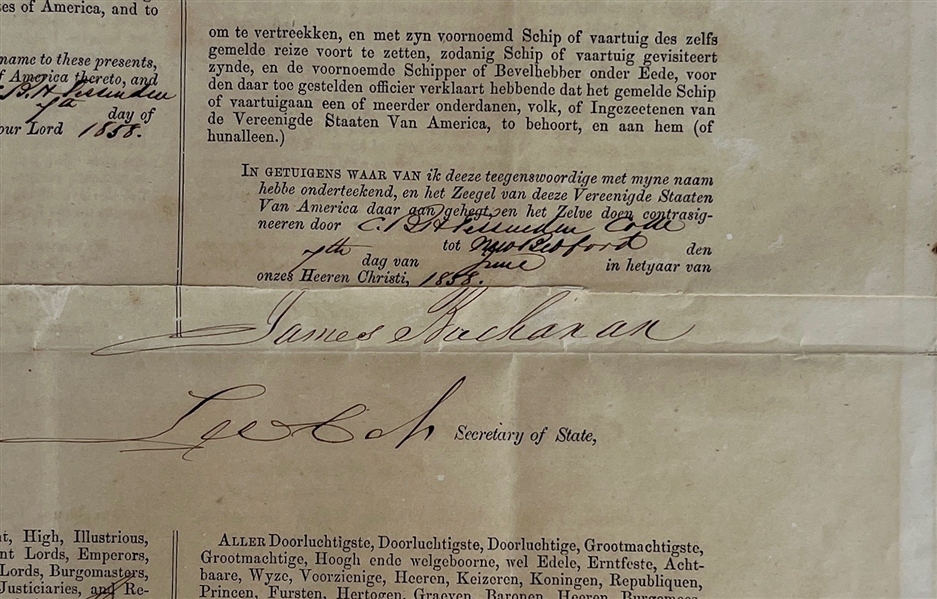 es of America, and to
name to these presents,
f America thereto, and
C. B. H. Fessenden
7th day of
our Lord 1858.
om te vertreekken, en met zyn voornoemd Schip of vaartuig des zelfs
gemelde reize voort te zetten, zodanig Schip of vaartuig gevisiteert
zynde, en de voornoemde Schipper of Bevelhebber onder Eede, voor
den daar toe gestelden officier verklaart hebbende dat het gemelde Schip
of vaartuigaan een of meerder onderdanen, volk, of Ingezeetenen van
de Vereenigde Staaten Van America, to behoort, en aan hem (of
hunalleen.)
In getuigens waar van ik deeze teegenswoordige met myne naam
hebbe onderteekend, en het Zeegel van deeze Vereenigde Staaten
Van America daar aan gehegt, en het Zelve doen contrasig-
neeren door C. B. H. Fessenden Colle
tot New Bedford den
7th dag van June in hetyaar van
onzes Heeren Christi, 1858.
James Buchanan
Secretary of State,
t, High, Illustrious,
nt Lords, Emperors,
Lords, Burgomasters,
Justiciaries, and Re-
Aller Doorluchtigste, Doorluchtigste, Doorluchtige, Grootmachtigste,
Grootmachtige, Hoogh ende welgeboorne, wel Edele, Erntfeste, Acht-
baare, Wyze, Voorzienige, Heeren, Keizeren, Koningen, Republiquen,
Princen, Fursten, Hertogen, Graeven, Baronen, Heeren, Burgemees-